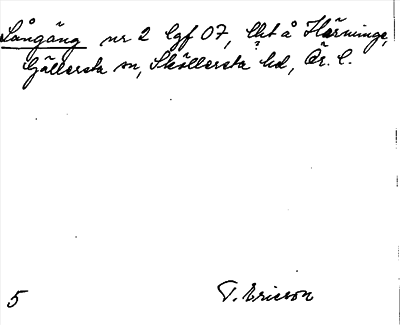 Långäng nr 2 lgf 07, lht å Härninge,
Gällersta sn, Sköllersta hd, Ör. l.
5 T. Ericson